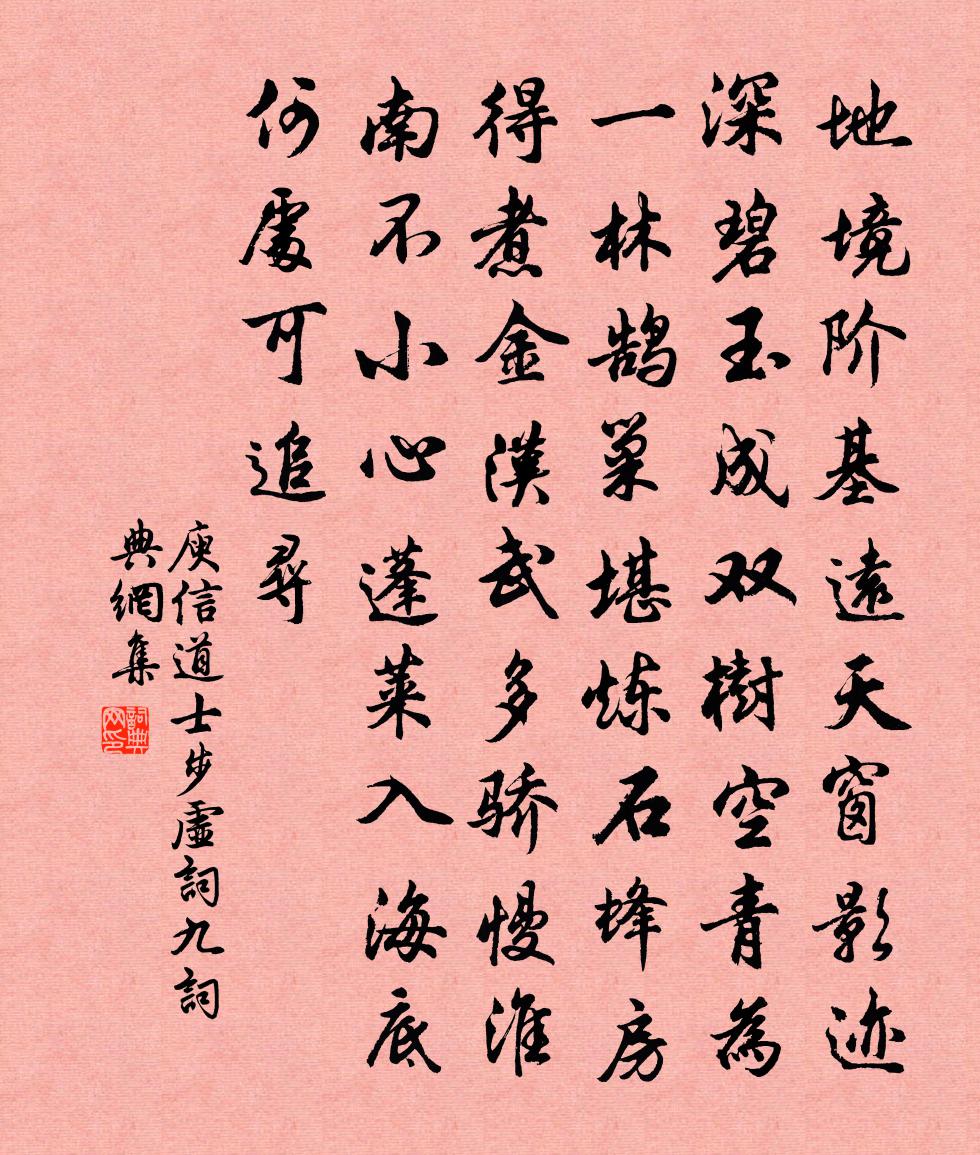 地境阶基遠天窗影迹
深碧玉成双樹空青為
一林鹄巢堪炼石蜂房
得煮金漢武多骄慢淮
南不小心蓬莱入海底
何處可追尋
庾信道士步虛詞九詞
典網集
詞典网印